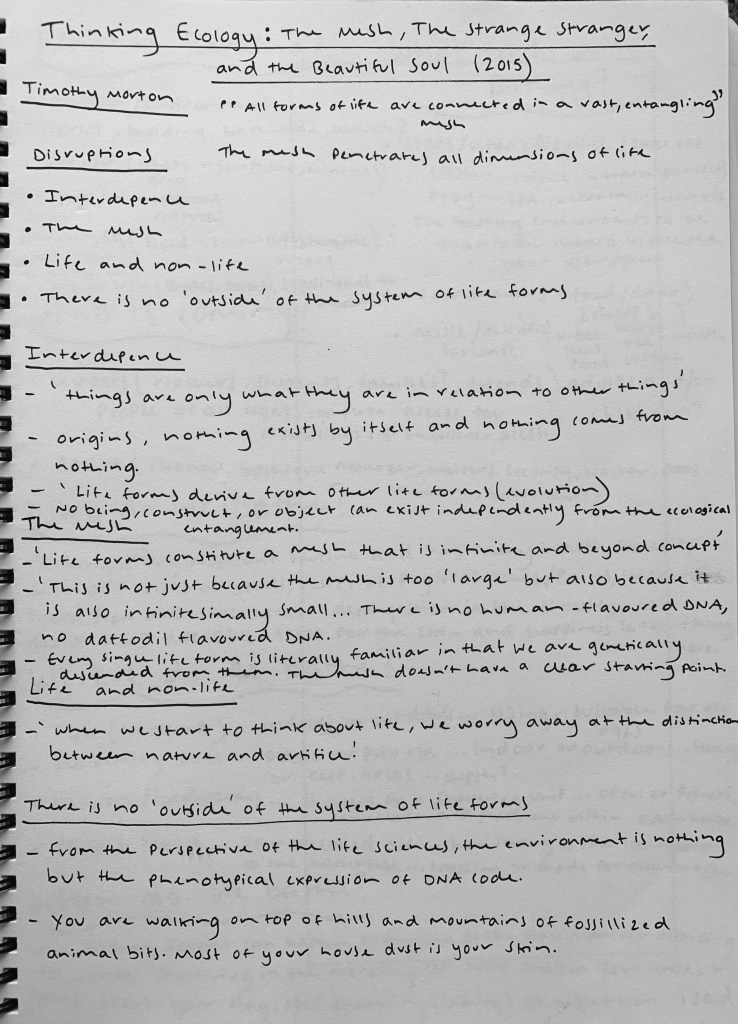 Thinking Ecology: The Mesh, The Strange Stranger,
and the Beautiful Soul (2015)
Timothy Morton
"All forms of life are connected in a vast, entangling"
mesh
Disruptions
The mesh penetrates all dimensions of life
• Interdepence
• The Mesh
• Life and non-life
• There is no 'outside' of the system of life forms
Interdepence
- 'things are only what they are in relation to other things'
- origins, nothing exists by itself and nothing comes from
nothing.
- 'Life forms derive from other life forms (evolution)
- No being, construct, or object can exist independently from the ecological
entanglement.
The Mesh
- 'Life forms constitute a mesh that is infinite and beyond concept'
- 'This is not just because the mesh is too 'large' but also because it
is also infinitesimally small... There is no human-flavoured DNA,
no daffodil flavoured DNA.
- Every single life form is literally familiar in that we are genetically
descended from them. The mesh doesn't have a clear starting point.
Life and non-life
- 'when we start to think about life, we worry away at the distinction
between nature and artifice'
There is no 'outside' of the system of life forms
- from the perspective of the life sciences, the environment is nothing
but the phenotypical expression of DNA code.
- You are walking on top of hills and mountains of fossillized
animal bits. Most of your house dust is your skin.